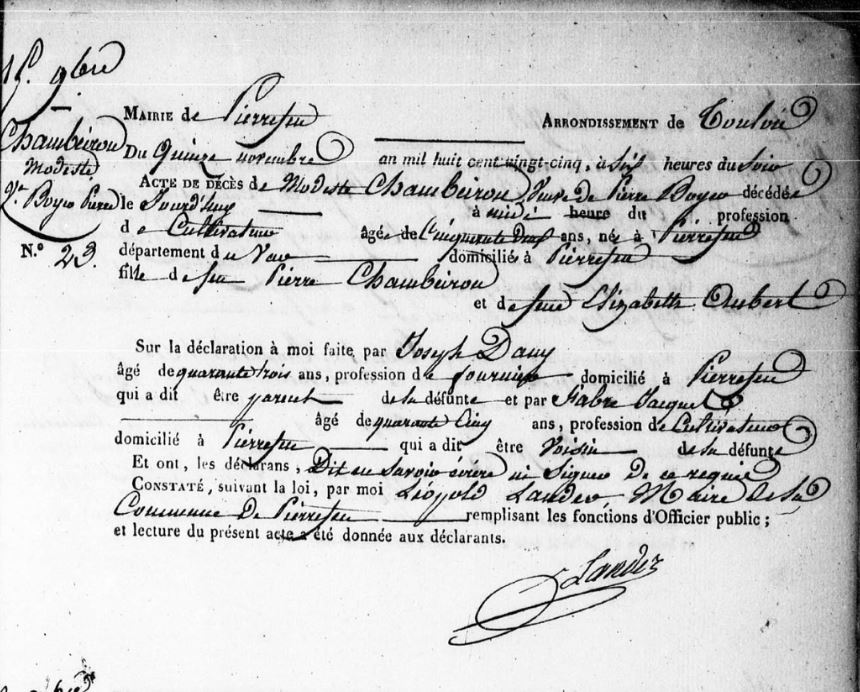 15. 9bre
Chambeiron
Modeste
Ve Boyer Pierre
N.° 23.
MAIRIE de Pierrefeu ARRONDISSEMENT de Toulon
Du Quinze novembre an mil huit cent vingt-cinq, à six heures du soir
ACTE DE DÉCÈS de Modeste Chambeiron Veuve de Pierre Boyer décédée
le Jourd'huy à midi heure du profession
de Cultivateur âgée de Cinquante Deux ans, née à Pierrefeu
département du Var domicilié à Pierrefeu
fille de feu Pierre Chambeiron
et de feue Elizabeth Aubert
Sur la déclaration à moi faite par Joseph Dauy
âgé de quarante trois ans, profession de fournier domicilié à Pierrefeu
qui a dit être parent de la défunte et par Fabre Jacques
âgé de quarante Cinq ans, profession de Cultivateur
domicilié à Pierrefeu qui a dit être Voisin de la défunte
Et ont, les déclarans, Dit ne Savoir écrire ni Signer de ce requis
CONSTATÉ, suivant la loi, par moi Léopold Lander Maire de la
Commune de Pierrefeu remplisant les fonctions d'Officier public;
et lecture du présent acte a été donnée aux déclarants.
Lander